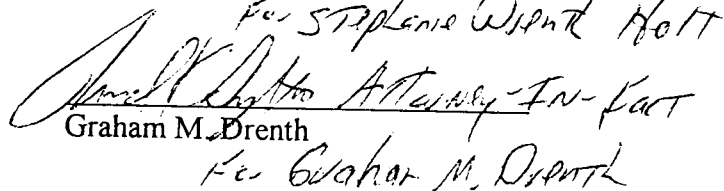 For Stephanie Wsenth Holt
Attorney-IN-Fact
Graham M. Drenth
For Graham M. Drenth